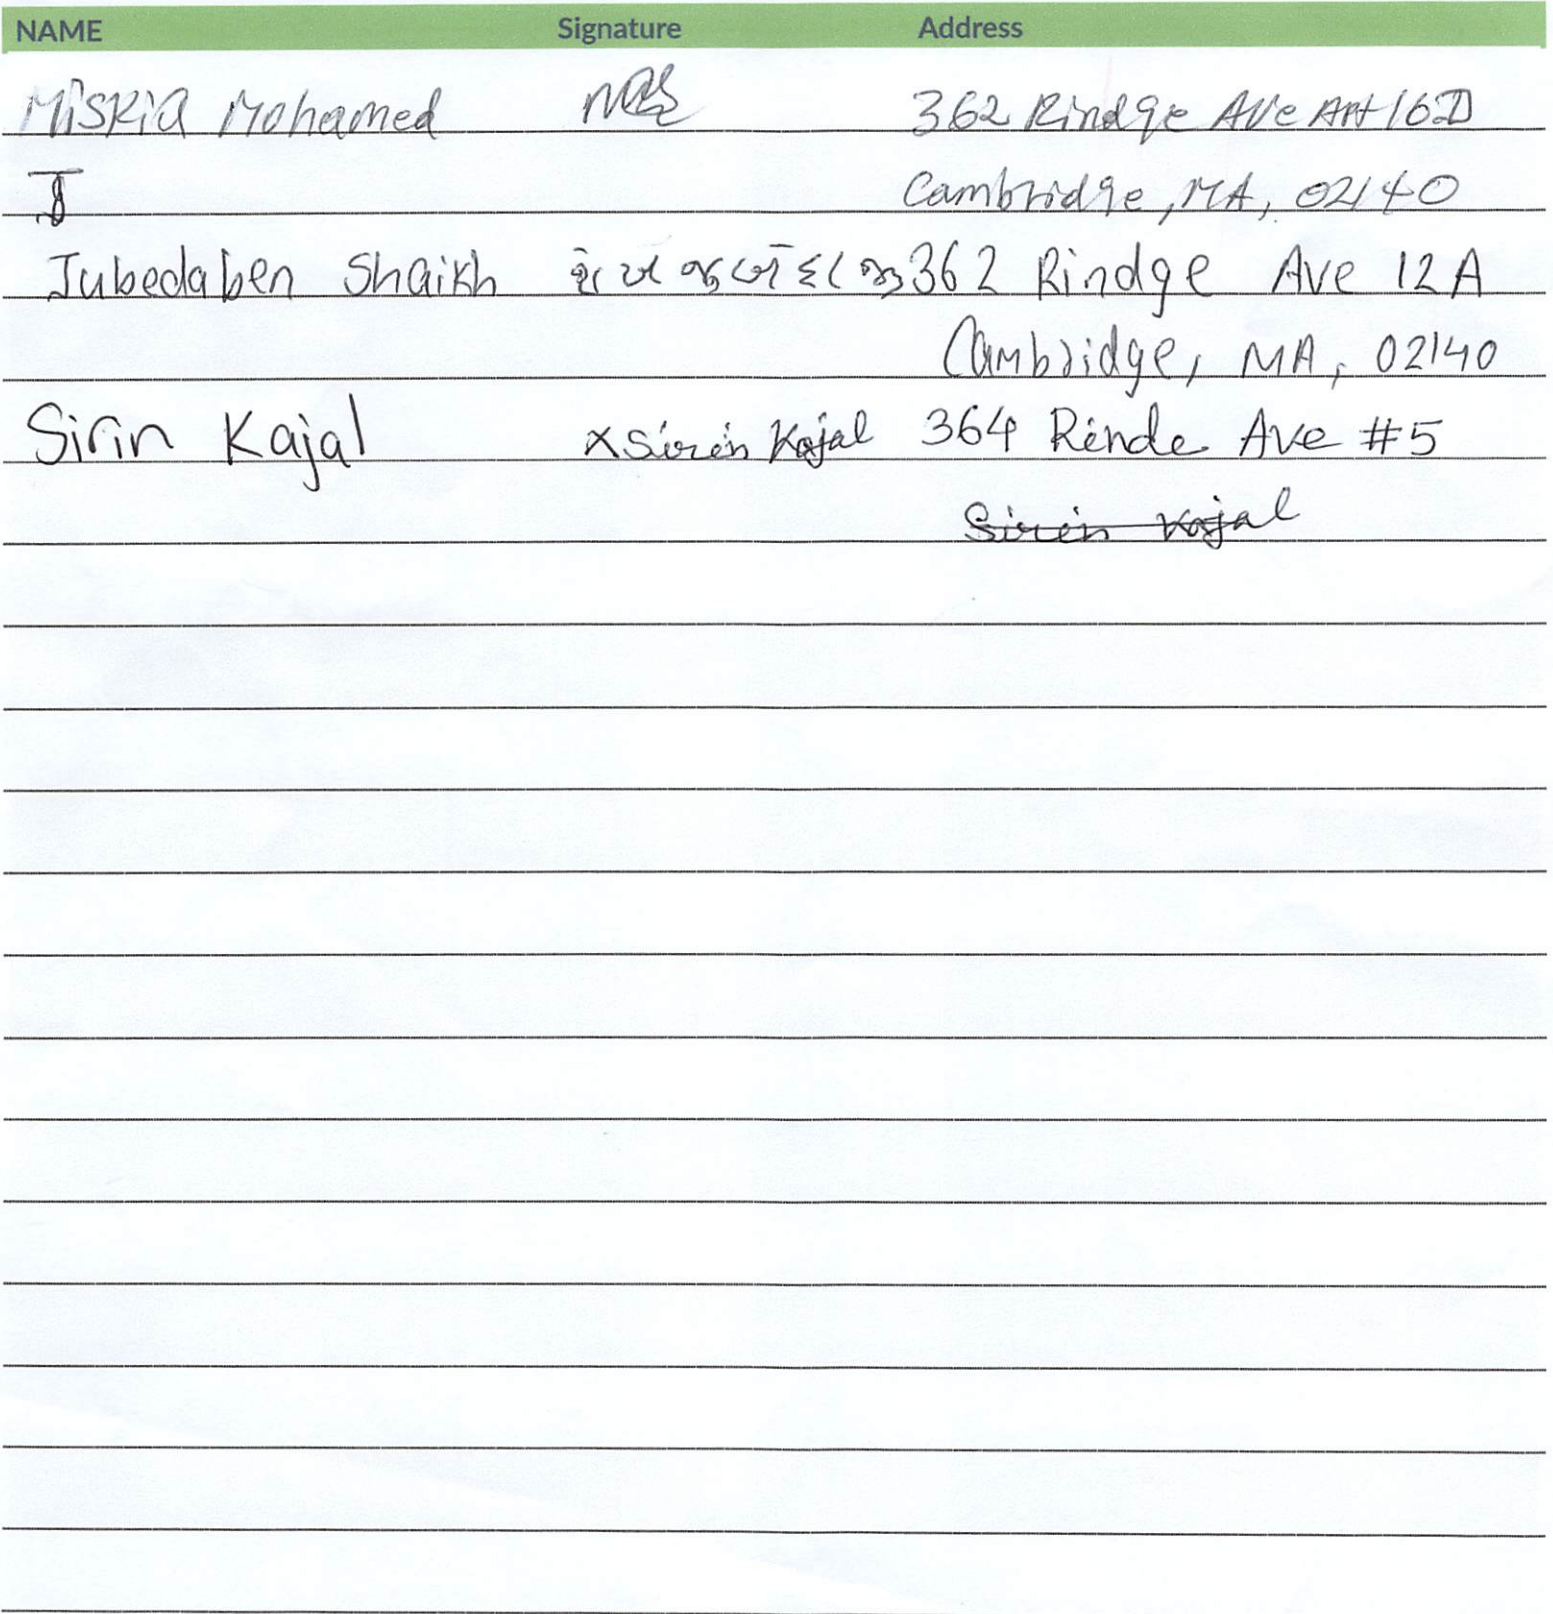 NAME Signature Address
Miskia Mohamed 362 Rindge Ave Apt 16D
Cambridge, MA, 02140
Jubedaben Shaikh શેખ 362 Rindge Ave 12A
Cambridge, MA, 02140
Sirin Kajal X Sirin Kajal 364 Rinde Ave #5
Sirin Kajal